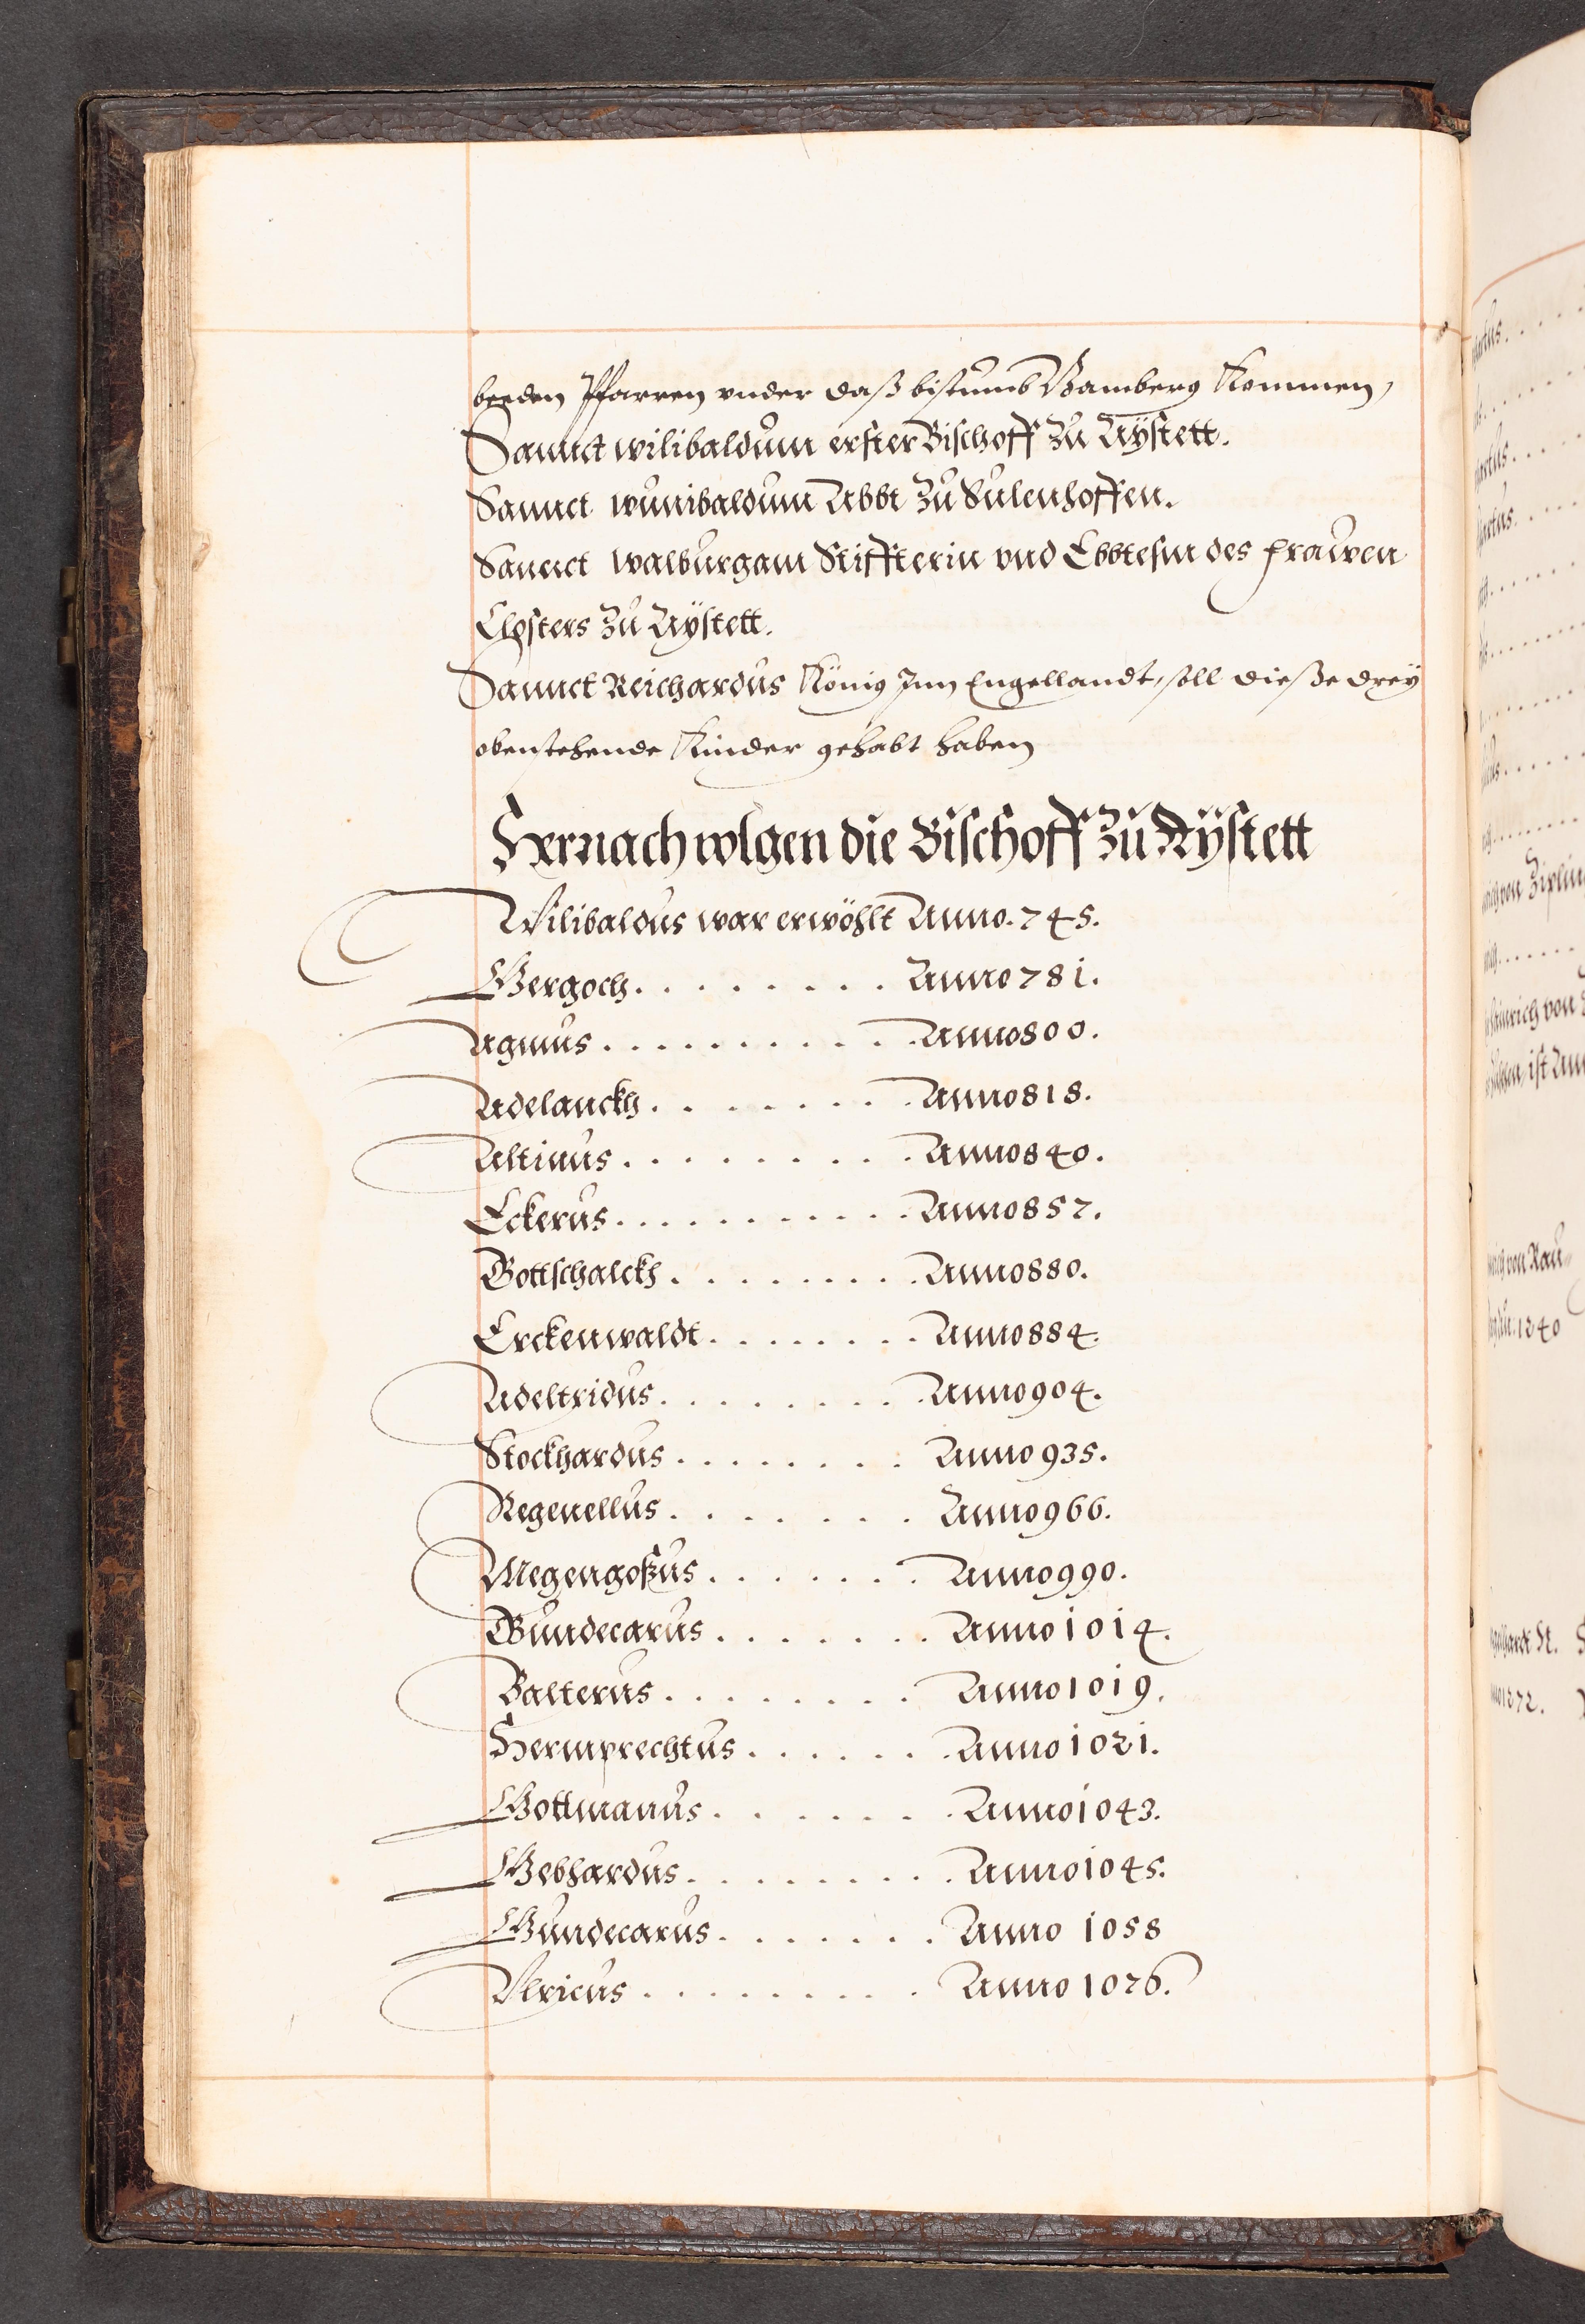 beeden Pfarren vnder daß bistumb Bamberg kommen,
Sannct wilibaldum erster Bischoff zu Aÿstett.
Sannct wunibaldum Abbt zu Sulenhoffen.
Sannct walburgam Stiffterin vnd Ebbtesin des frawen
Closters zu Aÿstett.
Sannct Reichardus König Inn Engellandt, soll diesse dreÿ
obenstehende Kinder gehabt haben
Hernach volgen die Bischoff zu Aÿstett
Wilibaldus war erwöhlt Anno. 745.
Gergoch. . . . . . . . . Anno 781.
Agnus . . . . . . . . . . Anno 800.
Adelanckh . . . . . . . . Anno 818.
Altinus . . . . . . . . . Anno 840.
Eckerus . . . . . . . . . . Anno 857.
Gottschalckh . . . . . . . . Anno 880.
Erckenwaldt . . . . . . . . Anno 884.
Adeltridus . . . . . . . . Anno 904.
Stockhardus . . . . . . . . Anno 935.
Regenellus . . . . . . . Anno 966.
Megengoßus . . . . . . . Anno 990.
Gundecarus . . . . . . . Anno 1014.
Balterus . . . . . . . . Anno 1019.
Hermprechtus . . . . . . . Anno 1021.
Gottmanus . . . . . . . Anno 1043.
Gebhardus . . . . . . . . Anno 1045.
Gundecarus . . . . . . . Anno 1058
Vlricus . . . . . . . . . Anno 1076.